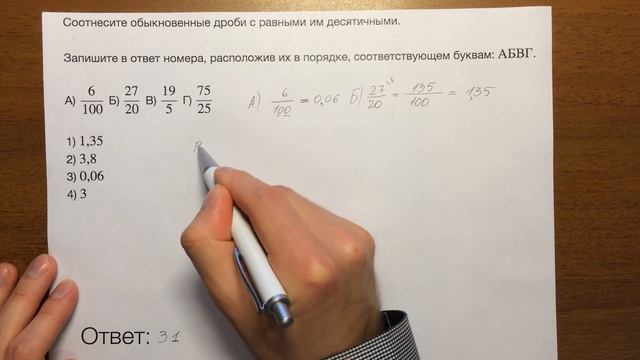 Соотнесите обыкновенные дроби с равными им десятичными.
Запишите в ответ номера, расположив их в порядке, соответствующем буквам: АБВГ.
А) 6/100 Б) 27/20 В) 19/5 Г) 75/25
А) 6/100 = 0,06 Б) 27/20 ^5 = 135/100 = 1,35
1) 1,35
2) 3,8
3) 0,06
4) 3
Ответ: 31